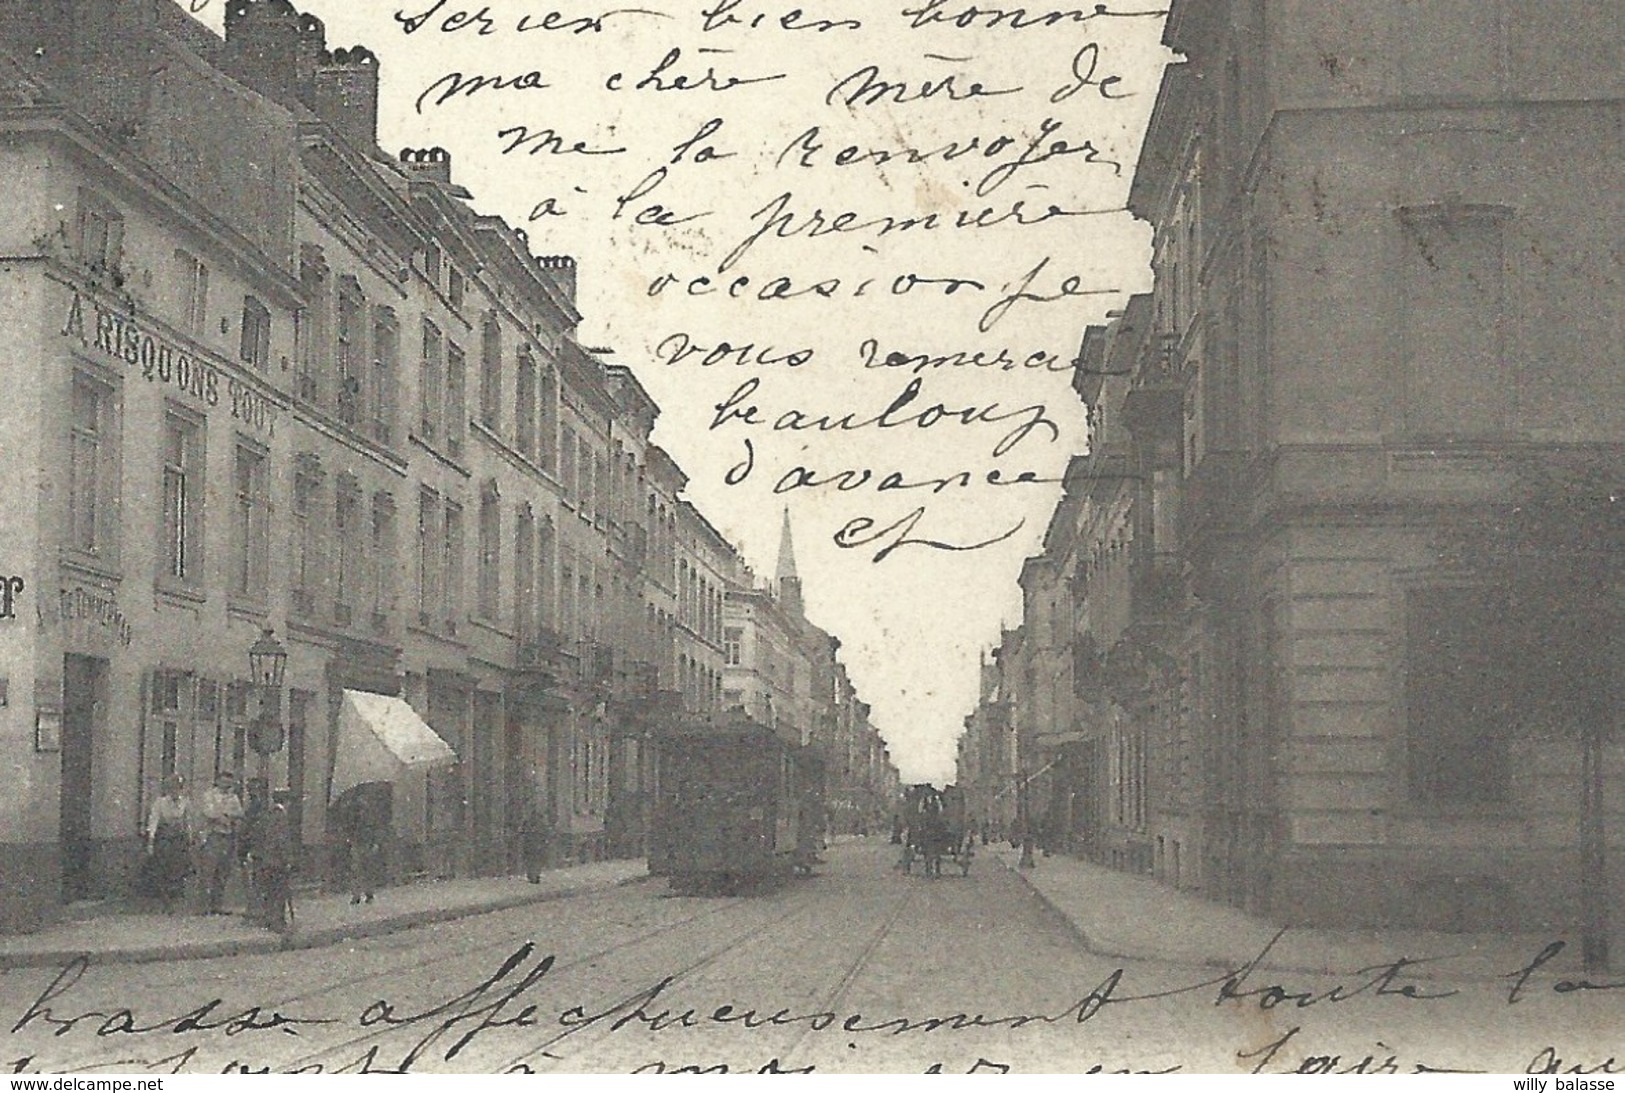 serier bien bonne
ma chère mère de
me la renvoyer
à la première
occasion je
vous remercie
beaucoup
d'avance
et
A RISQUONS TOUT
brasse affectueusement toute la
à moi en faire
www.delcampe.net
willy balasse